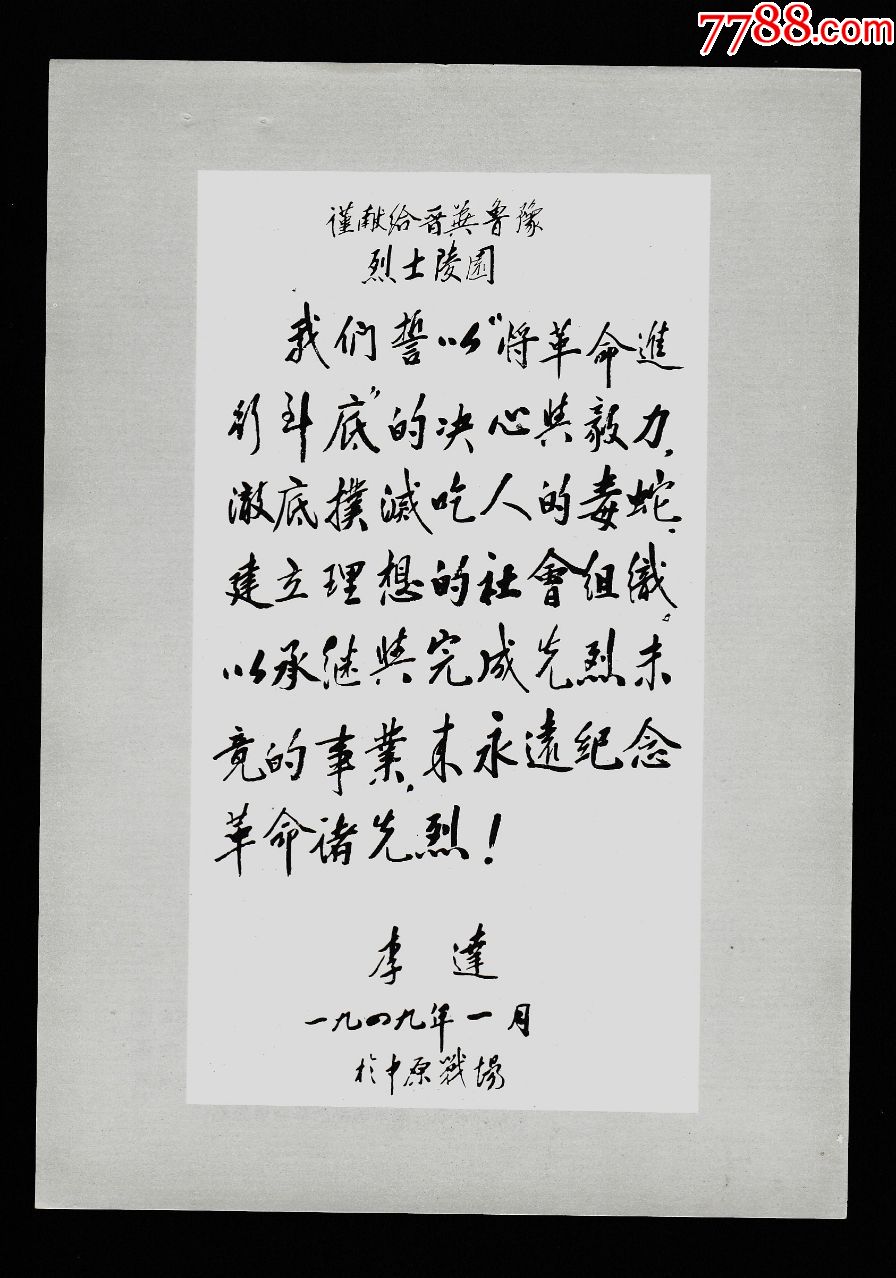 7788.com
谨献给晋冀鲁豫
烈士陵园
我们誓以“将革命進
行到底”的决心與毅力,
澈底撲滅吃人的毒蛇.
建立理想的社會组織。
以承继與完成先烈未
竟的事業,来永遠纪念
革命诸先烈!
李達
一九四九年一月
於中原戰場